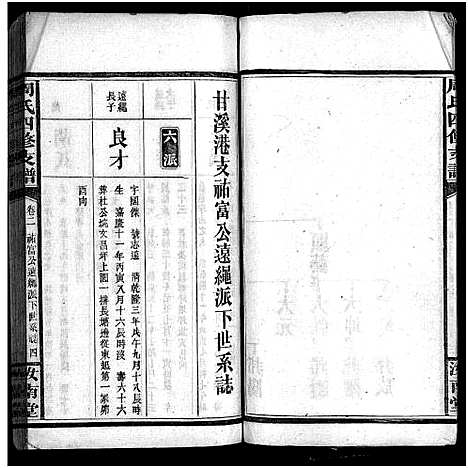 周氏四修支譜
甘溪港支祐富公遠繩派下世系誌
六派
遠繩長子
良才
字國傑 號志遠 清乾隆三年戊午九月十八辰時
生 嘉慶十一年丙寅八月十六辰時沒 壽六十六
葬杜公垸文昌坪上園一排長塘邊從東邊第一冢
酉向
周氏四修支譜
卷二 祐富公遠繩派下世系
四
汝南堂